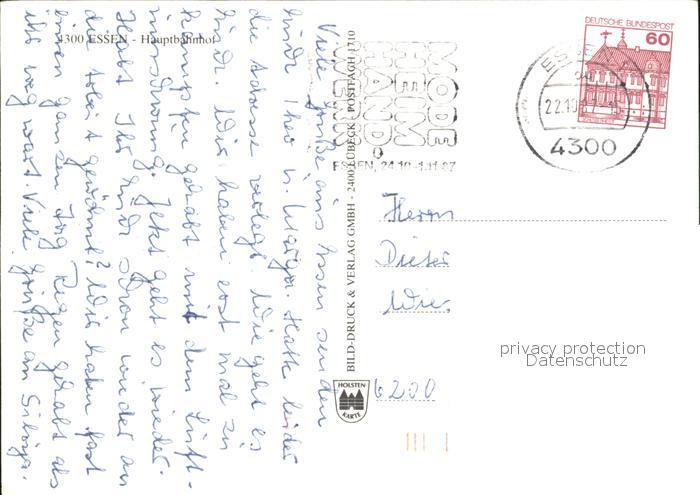 4300 ESSEN - Hauptbahnhof
Viele Grüße aus Essen senden
Euch Theo u. Marga. Hatte leider
die Adresse verlegt. Wie geht es
Euch. Wir haben erst mal zu
kämpfen gehabt mit dem Luft-
Jetzt geht es wieder.
Habt Ihr Euch schon wieder an
die Arbeit gewöhnt? Wir haben fast
einen ganzen Tag Regen gehabt als
Ihr weg wart. Viele Grüße an Silvija.
BILD-DRUCK & VERLAG GMBH - 2400 LÜBECK - POSTFACH 1710
MODE
HEIM
HAND
WERK
ESSEN, 24.10.-1.11.87
ESSEN
22.10.
4300
DEUTSCHE BUNDESPOST
60
Herrn
Dieter
6200
HOLSTEN
KARTE
privacy protection
Datenschutz